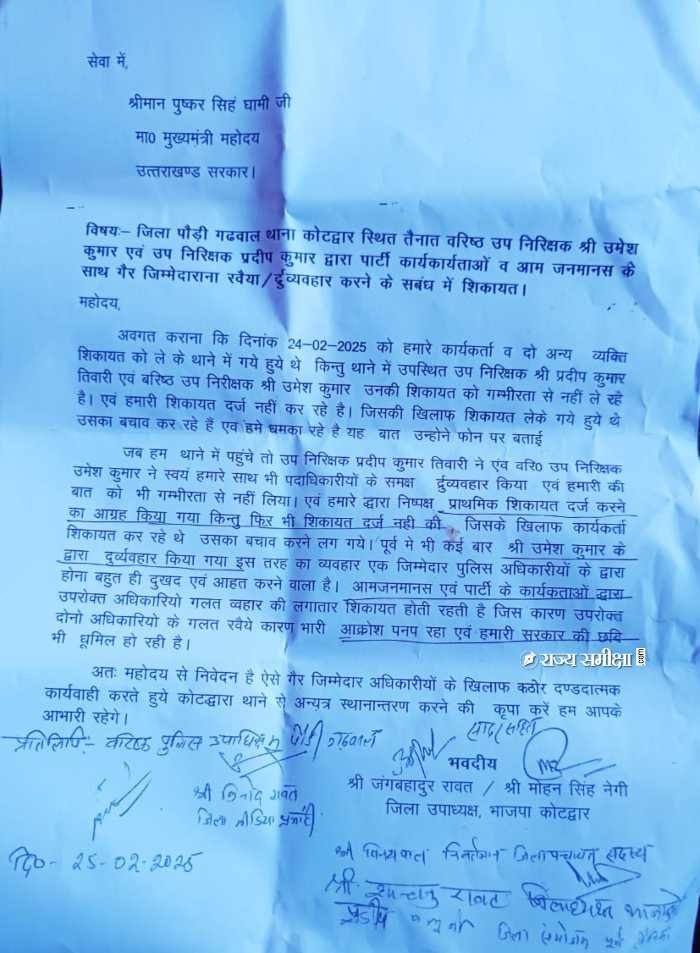 सेवा में,
श्रीमान पुष्कर सिहं धामी जी
मा0 मुख्यमंत्री महोदय
उत्तराखण्ड सरकार।
विषयः– जिला पौड़ी गढवाल थाना कोटद्वार स्थित तैनात वरिष्ठ उप निरिक्षक श्री उमेश
कुमार एवं उप निरिक्षक प्रदीप कुमार द्वारा पार्टी कार्यकार्यताओं व आम जनमानस के
साथ गैर जिम्मेदाराना रवैया/र्दुव्यवहार करने के सबंध में शिकायत।
महोदय,
अवगत कराना कि दिनांक 24–02–2025 को हमारे कार्यकर्ता व दो अन्य व्यक्ति
शिकायत को ले के थाने में गये हुये थे किन्तु थाने में उपस्थित उप निरिक्षक श्री प्रदीप कुमार
तिवारी एवं बरिष्ठ उप निरीक्षक श्री उमेश कुमार उनकी शिकायत को गम्भीरता से नहीं ले रहे
है। एवं हमारी शिकायत दर्ज नहीं कर रहे है। जिसकी खिलाफ शिकायत लेके गये हुये थे
उसका बचाव कर रहे हैं एवं हमे धमका रहे है यह बात उन्होने फोन पर बताई
जब हम थाने में पहुंचे तो उप निरिक्षक प्रदीप कुमार तिवारी ने एंव वरि0 उप निरिक्षक
उमेश कुमार ने स्वयं हमारे साथ भी पदाधिकारीयों के समक्ष र्दुव्यवहार किया एवं हमारी की
बात को भी गम्भीरता से नहीं लिया। एवं हमारे द्वारा निष्पक्ष प्राथमिक शिकायत दर्ज करने
का आग्रह किया गया किन्तु फिर भी शिकायत दर्ज नही की जिसके खिलाफ कार्यकर्ता
शिकायत कर रहे थे उसका बचाव करने लग गये। पूर्व मे भी कई बार श्री उमेश कुमार के
द्वारा दुर्व्यवहार किया गया इस तरह का व्यवहार एक जिम्मेदार पुलिस अधिकारीयों के द्वारा
होना बहुत ही दुखद एवं आहत करने वाला है। आमजनमानस एवं पार्टी के कार्यकताओं द्वारा
उपरोक्त अधिकारियो गलत व्यहार की लगातार शिकायत होती रहती है जिस कारण उपरोक्त
दोनो अधिकारियो के गलत रवैये कारण भारी आक्रोश पनप रहा एवं हमारी सरकार की छवि
भी धूमिल हो रही है।
राज्य समीक्षा .com
अतः महोदय से निवेदन है ऐसे गैर जिम्मेदार अधिकारीयों के खिलाफ कठोर दण्डदात्मक
कार्यवाही करते हुये कोटद्धारा थाने से अन्यत्र स्थानान्तरण करने की कृपा करें हम आपके
आभारी रहेगे।
प्रतिलिपि:- वरिष्ठ पुलिस पौड़ी गढ़वाल
भवदीय
श्री जंगबहादुर रावत / श्री मोहन सिंह नेगी
जिला उपाध्यक्ष, भाजपा कोटद्वार
श्री विनोद रावत
जिला मीडिया प्रभारी
दि0- 25-02-2025
जिला पंचायत सदस्य
श्री रावत
जिला संयोजक पूर्व